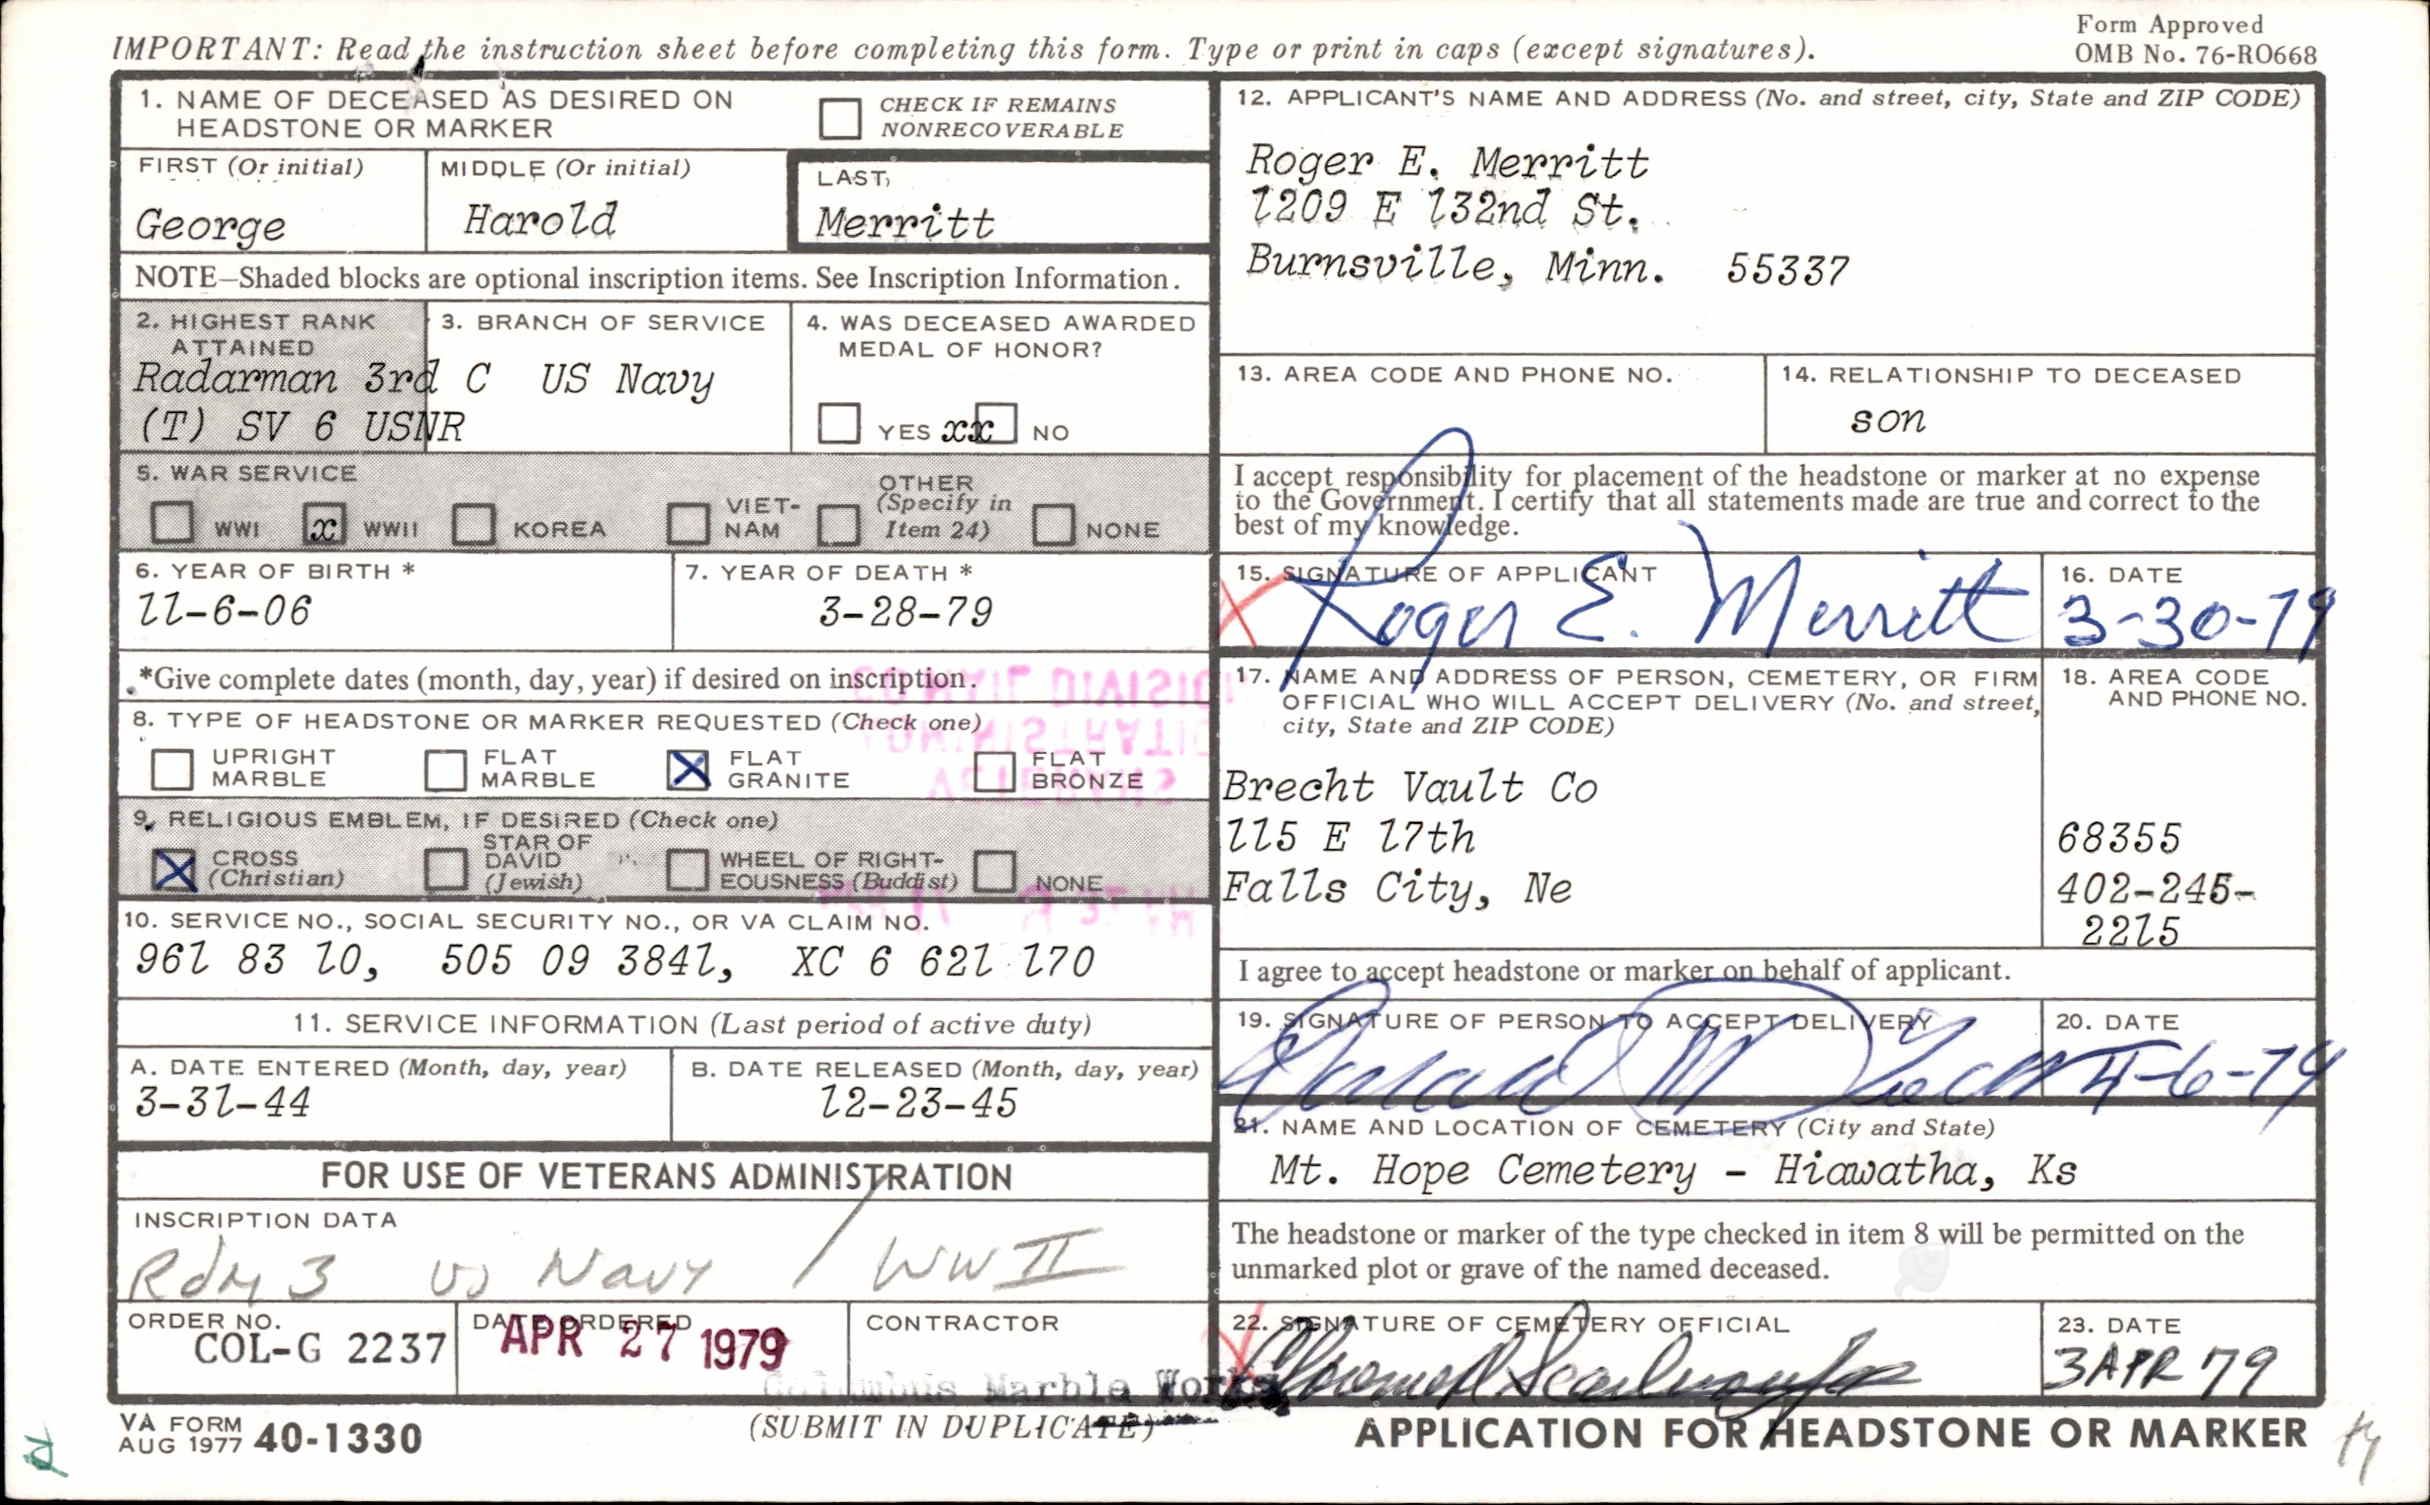 IMPORTANT: Read the instruction sheet before completing this form. Type or print in caps (except signatures).
Form Approved
OMB No. 76-RO668
1. NAME OF DECEASED AS DESIRED ON
HEADSTONE OR MARKER
CHECK IF REMAINS
NONRECOVERABLE
FIRST (Or initial)
George
MIDDLE (Or initial)
Harold
LAST
Merritt
NOTE—Shaded blocks are optional inscription items. See Inscription Information.
2. HIGHEST RANK
ATTAINED
3. BRANCH OF SERVICE
Radarman 3rd C US Navy
(T) SV 6 USNR
4. WAS DECEASED AWARDED
MEDAL OF HONOR?
YES xx NO
5. WAR SERVICE
WWI
x WWII
KOREA
VIET-
NAM
OTHER
(Specify in
Item 24)
NONE
6. YEAR OF BIRTH *
11-6-06
7. YEAR OF DEATH *
3-28-79
*Give complete dates (month, day, year) if desired on inscription.
8. TYPE OF HEADSTONE OR MARKER REQUESTED (Check one)
UPRIGHT
MARBLE
FLAT
MARBLE
X FLAT
GRANITE
FLAT
BRONZE
9. RELIGIOUS EMBLEM, IF DESIRED (Check one)
X CROSS
(Christian)
STAR OF
DAVID
(Jewish)
WHEEL OF RIGHT-
EOUSNESS (Buddist)
NONE
10. SERVICE NO., SOCIAL SECURITY NO., OR VA CLAIM NO.
961 83 10, 505 09 3841, XC 6 621 170
11. SERVICE INFORMATION (Last period of active duty)
A. DATE ENTERED (Month, day, year)
3-31-44
B. DATE RELEASED (Month, day, year)
12-23-45
FOR USE OF VETERANS ADMINISTRATION
INSCRIPTION DATA
RdM 3 US Navy / WW II
ORDER NO.
COL-G 2237
DATE ORDERED
APR 27 1979
CONTRACTOR
Columbus Marble Works
VA FORM
AUG 1977 40-1330
(SUBMIT IN DUPLICATE)
12. APPLICANT'S NAME AND ADDRESS (No. and street, city, State and ZIP CODE)
Roger E. Merritt
1209 E 132nd St.
Burnsville, Minn. 55337
13. AREA CODE AND PHONE NO.
14. RELATIONSHIP TO DECEASED
son
I accept responsibility for placement of the headstone or marker at no expense
to the Government. I certify that all statements made are true and correct to the
best of my knowledge.
15. SIGNATURE OF APPLICANT
X Roger E. Merritt
16. DATE
3-30-79
17. NAME AND ADDRESS OF PERSON, CEMETERY, OR FIRM
OFFICIAL WHO WILL ACCEPT DELIVERY (No. and street,
city, State and ZIP CODE)
Brecht Vault Co
115 E 17th
Falls City, Ne
18. AREA CODE
AND PHONE NO.
68355
402-245-
2215
I agree to accept headstone or marker on behalf of applicant.
19. SIGNATURE OF PERSON TO ACCEPT DELIVERY
20. DATE
4-6-79
21. NAME AND LOCATION OF CEMETERY (City and State)
Mt. Hope Cemetery - Hiawatha, Ks
The headstone or marker of the type checked in item 8 will be permitted on the
unmarked plot or grave of the named deceased.
22. SIGNATURE OF CEMETERY OFFICIAL
23. DATE
3 APR 79
APPLICATION FOR HEADSTONE OR MARKER